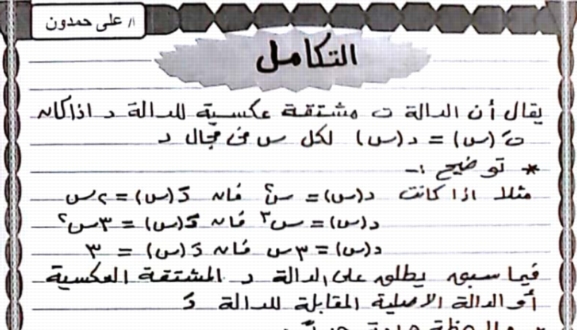 أ/ على حمدون
التكامل
يقال أن الدالة ت مشتقة عكسية للدالة د اذا كان
تَ (س) = د(س) لكل س فى مجال د
* توضيح :-
مثلا اذا كانت د(س) = س٢ فان دَ(س) = ٢س
د(س) = س٣ فان دَ(س) = ٣س٢
د(س) = ٣س فان دَ(س) = ٣
فيما سبق يطلق على الدالة د المشتقة العكسية
أو الدالة الاصلية المقابلة للدالة دَ